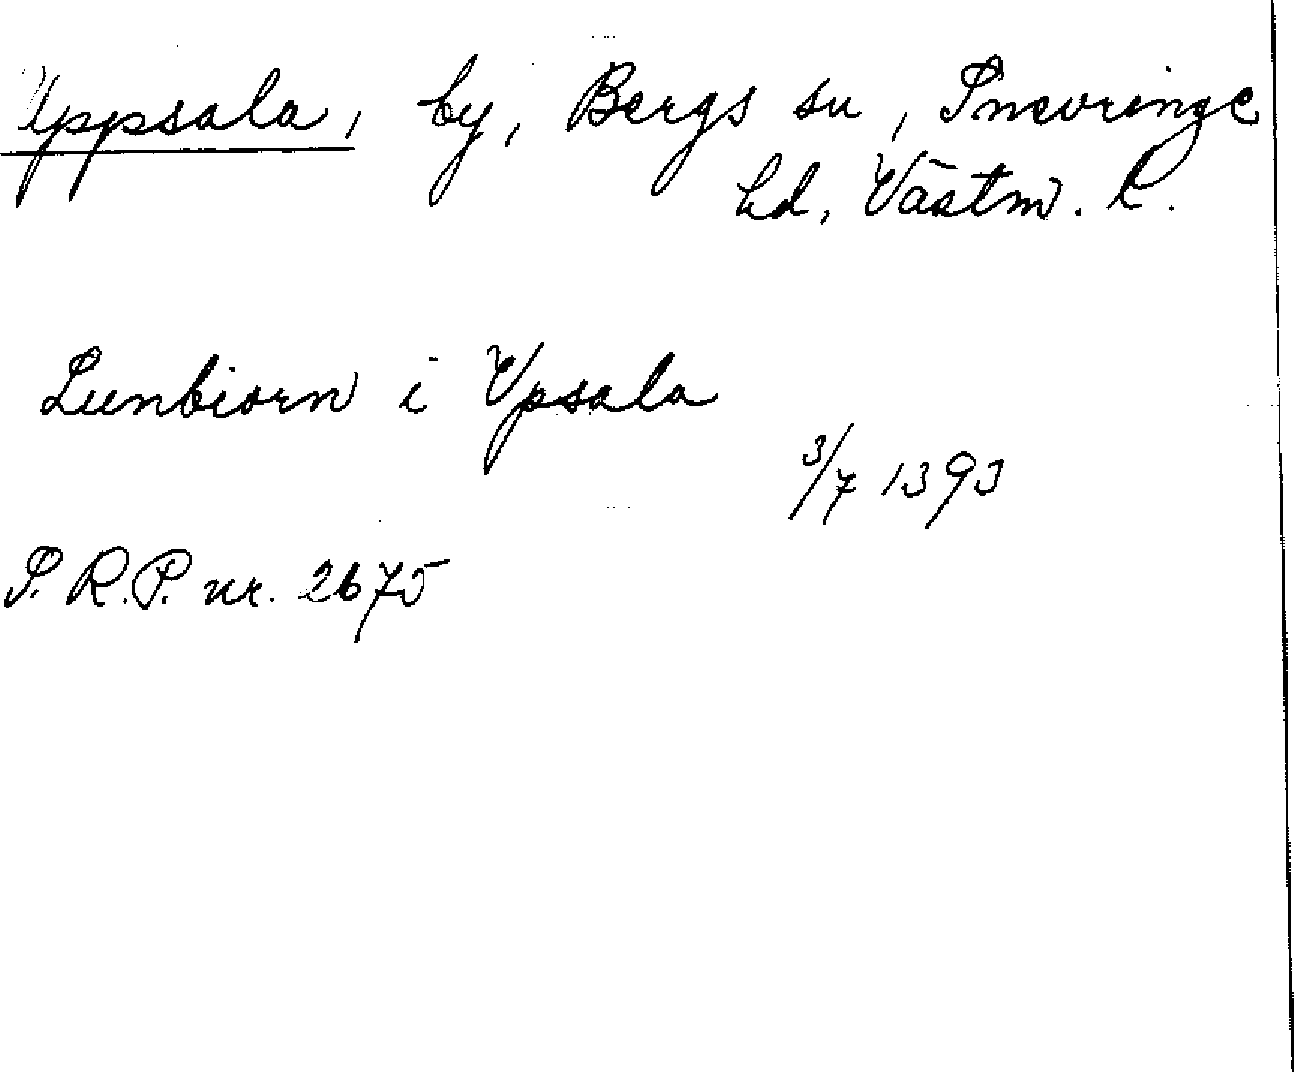 Uppsala, by, Bergs sn, Snevringe
hd, Västm. l.
Lunbiorn i Vpsala
3/7 1393
S.R.P. nr. 2675